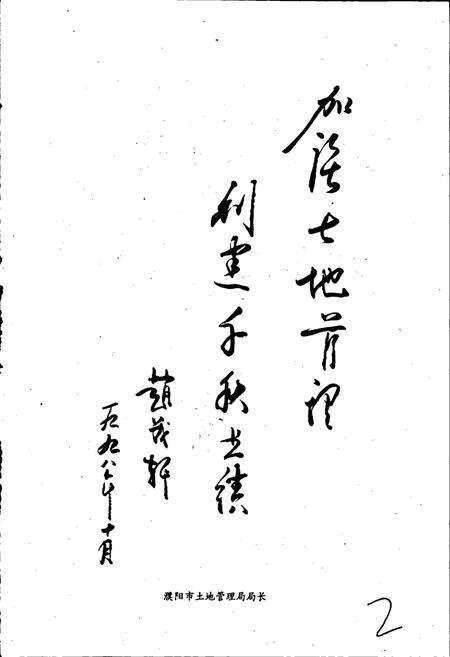 加强土地管理
创建千秋业绩
趙茂軒
一九九八年十月
濮阳市土地管理局局长
2